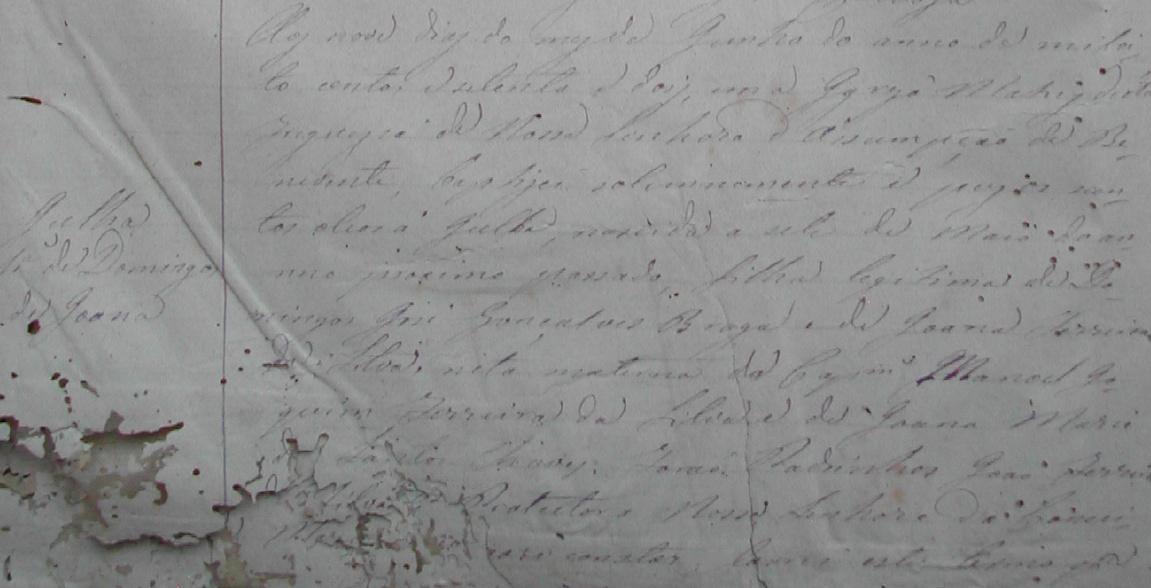 Aos nove dias do mez de Junho do anno de mil oi
to centos e setenta e dois, n'esta Igreja Matriz desta
freguezia de Nossa Senhora d'Assumpção de Be-
nevente, baptizei solemnemente e puz os san-
tos oleos á Julha, nascida a sete de Maio do an
no proximo passado, filha legitima de Do-
mingos José Gonçalves Braga e de Joana Ferreira
da Silva, neta materna do Cap.m Manoel Jo-
quim Ferreira da Silva e de Joana Maria
Forão Padrinhos João Ferreira
da Silva e Protectora Nossa Senhora da Concei-
para constar, lavrei este termo
Julha
f.a de Domingos
de Joana